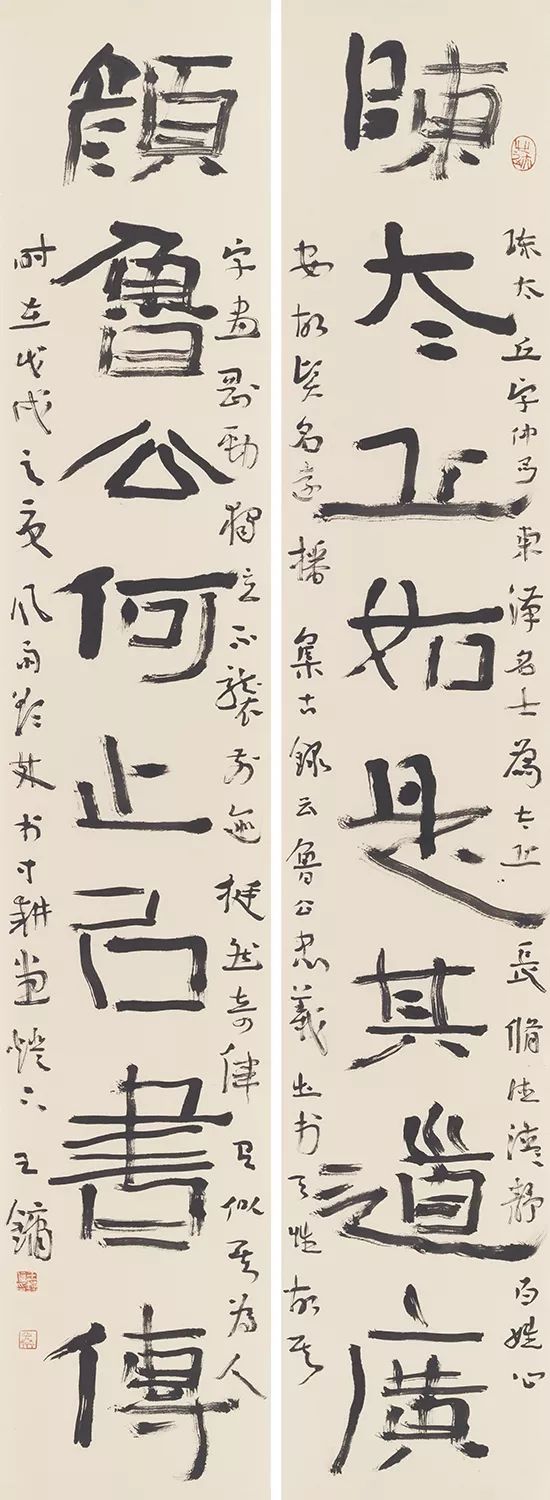 陳太丘如是其道廣
顏魯公何止以書傳
陈太丘字仲弓東漢名士為太丘長脩德清静百姓心
安故賢名遠播 集古録云魯公忠義出於天性故其
字畫剛勁獨立不襲前迹挺然奇偉有似其為人
时在戊戌之夏風雨书寸耕堂燈下王鏞